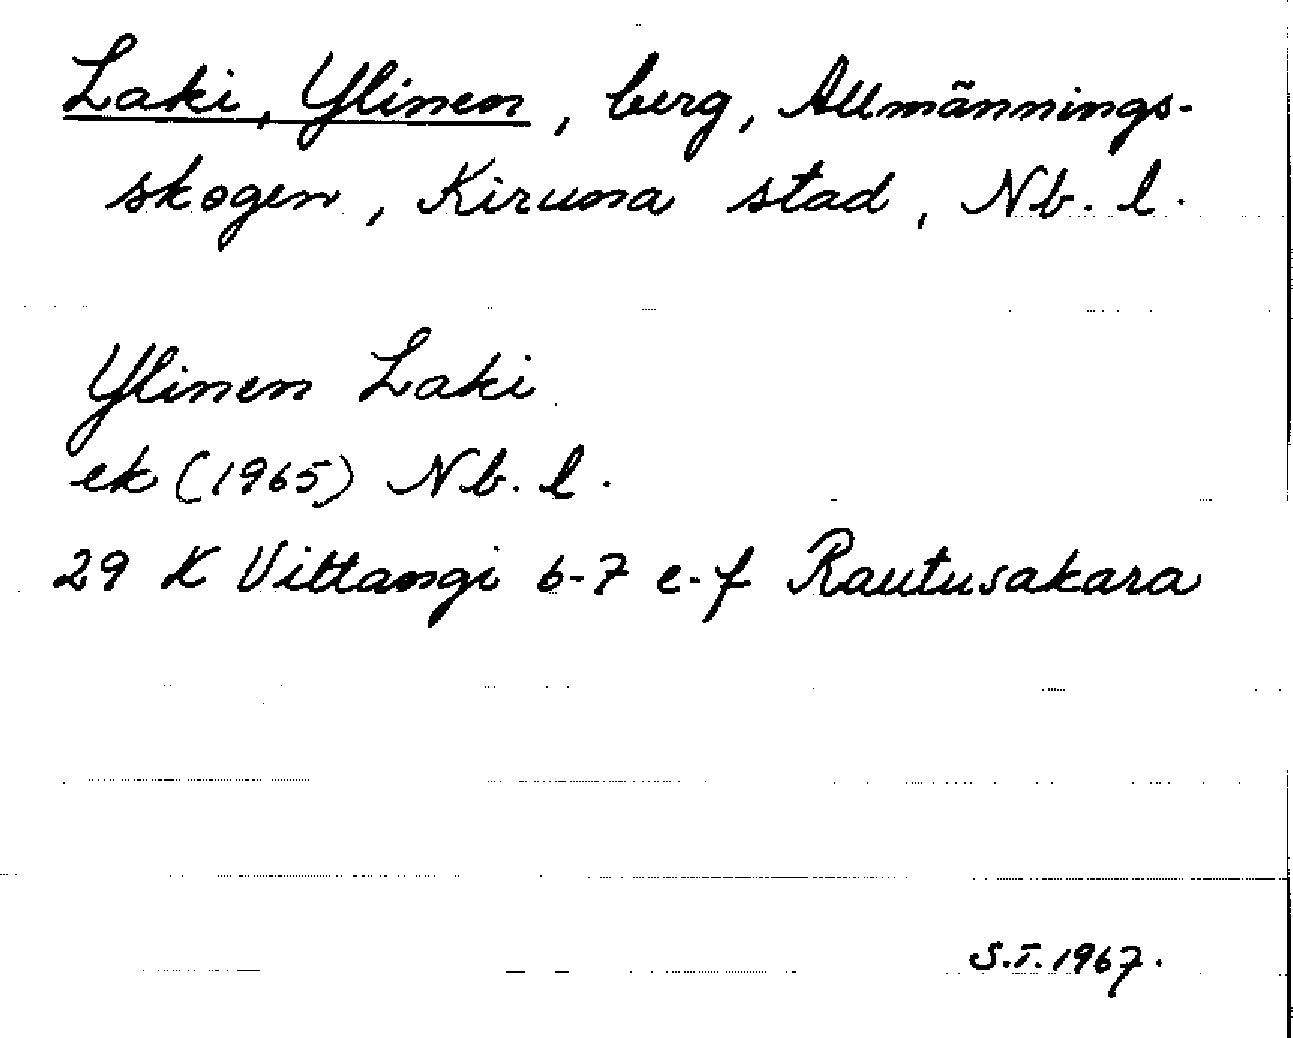 Laki, Ylinen, berg, Allmännings-
skogen, Kiruna stad, Nb. l.
Ylinen Laki
ek (1965) Nb. l.
29 K Vittangi 6-7 e-f Rautusakara
S.T. 1967.